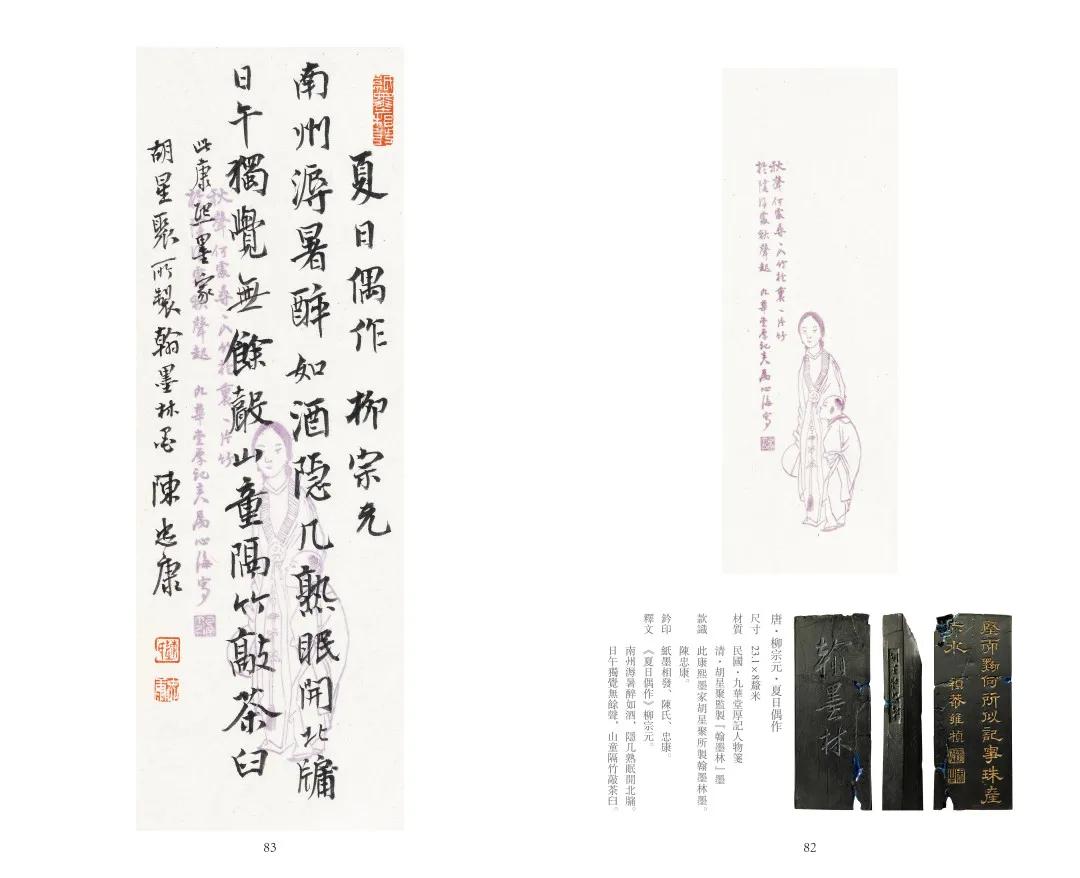 秋聲何處尋入竹
一片竹
秋聲起 九華堂厚記 屬心海寫
堅而黝何所似記事珠產
水
翰墨林
唐·柳宗元·夏日偶作
尺寸 23.1×8釐米
材質 民國·九華堂厚記人物箋
清·胡星聚監製『翰墨林』墨
款識 此康熙墨家胡星聚所製翰墨林墨。
陳忠康。
鈐印 紙墨相發、陳氏、忠康。
釋文 《夏日偶作》柳宗元。
南州溽暑醉如酒，隱几熟眠開北牖。
日午獨覺無餘聲，山童隔竹敲茶臼。
82
紙墨相發
夏日偶作 柳宗元
南州溽暑醉如酒隱几熟眠開北牖
日午獨覺無餘聲山童隔竹敲茶臼
此康熙墨家
胡星聚所製翰墨林墨 陳忠康
陳氏
忠康
秋聲何處尋入竹
一片竹
秋聲起 九華堂厚記 屬心海寫
83